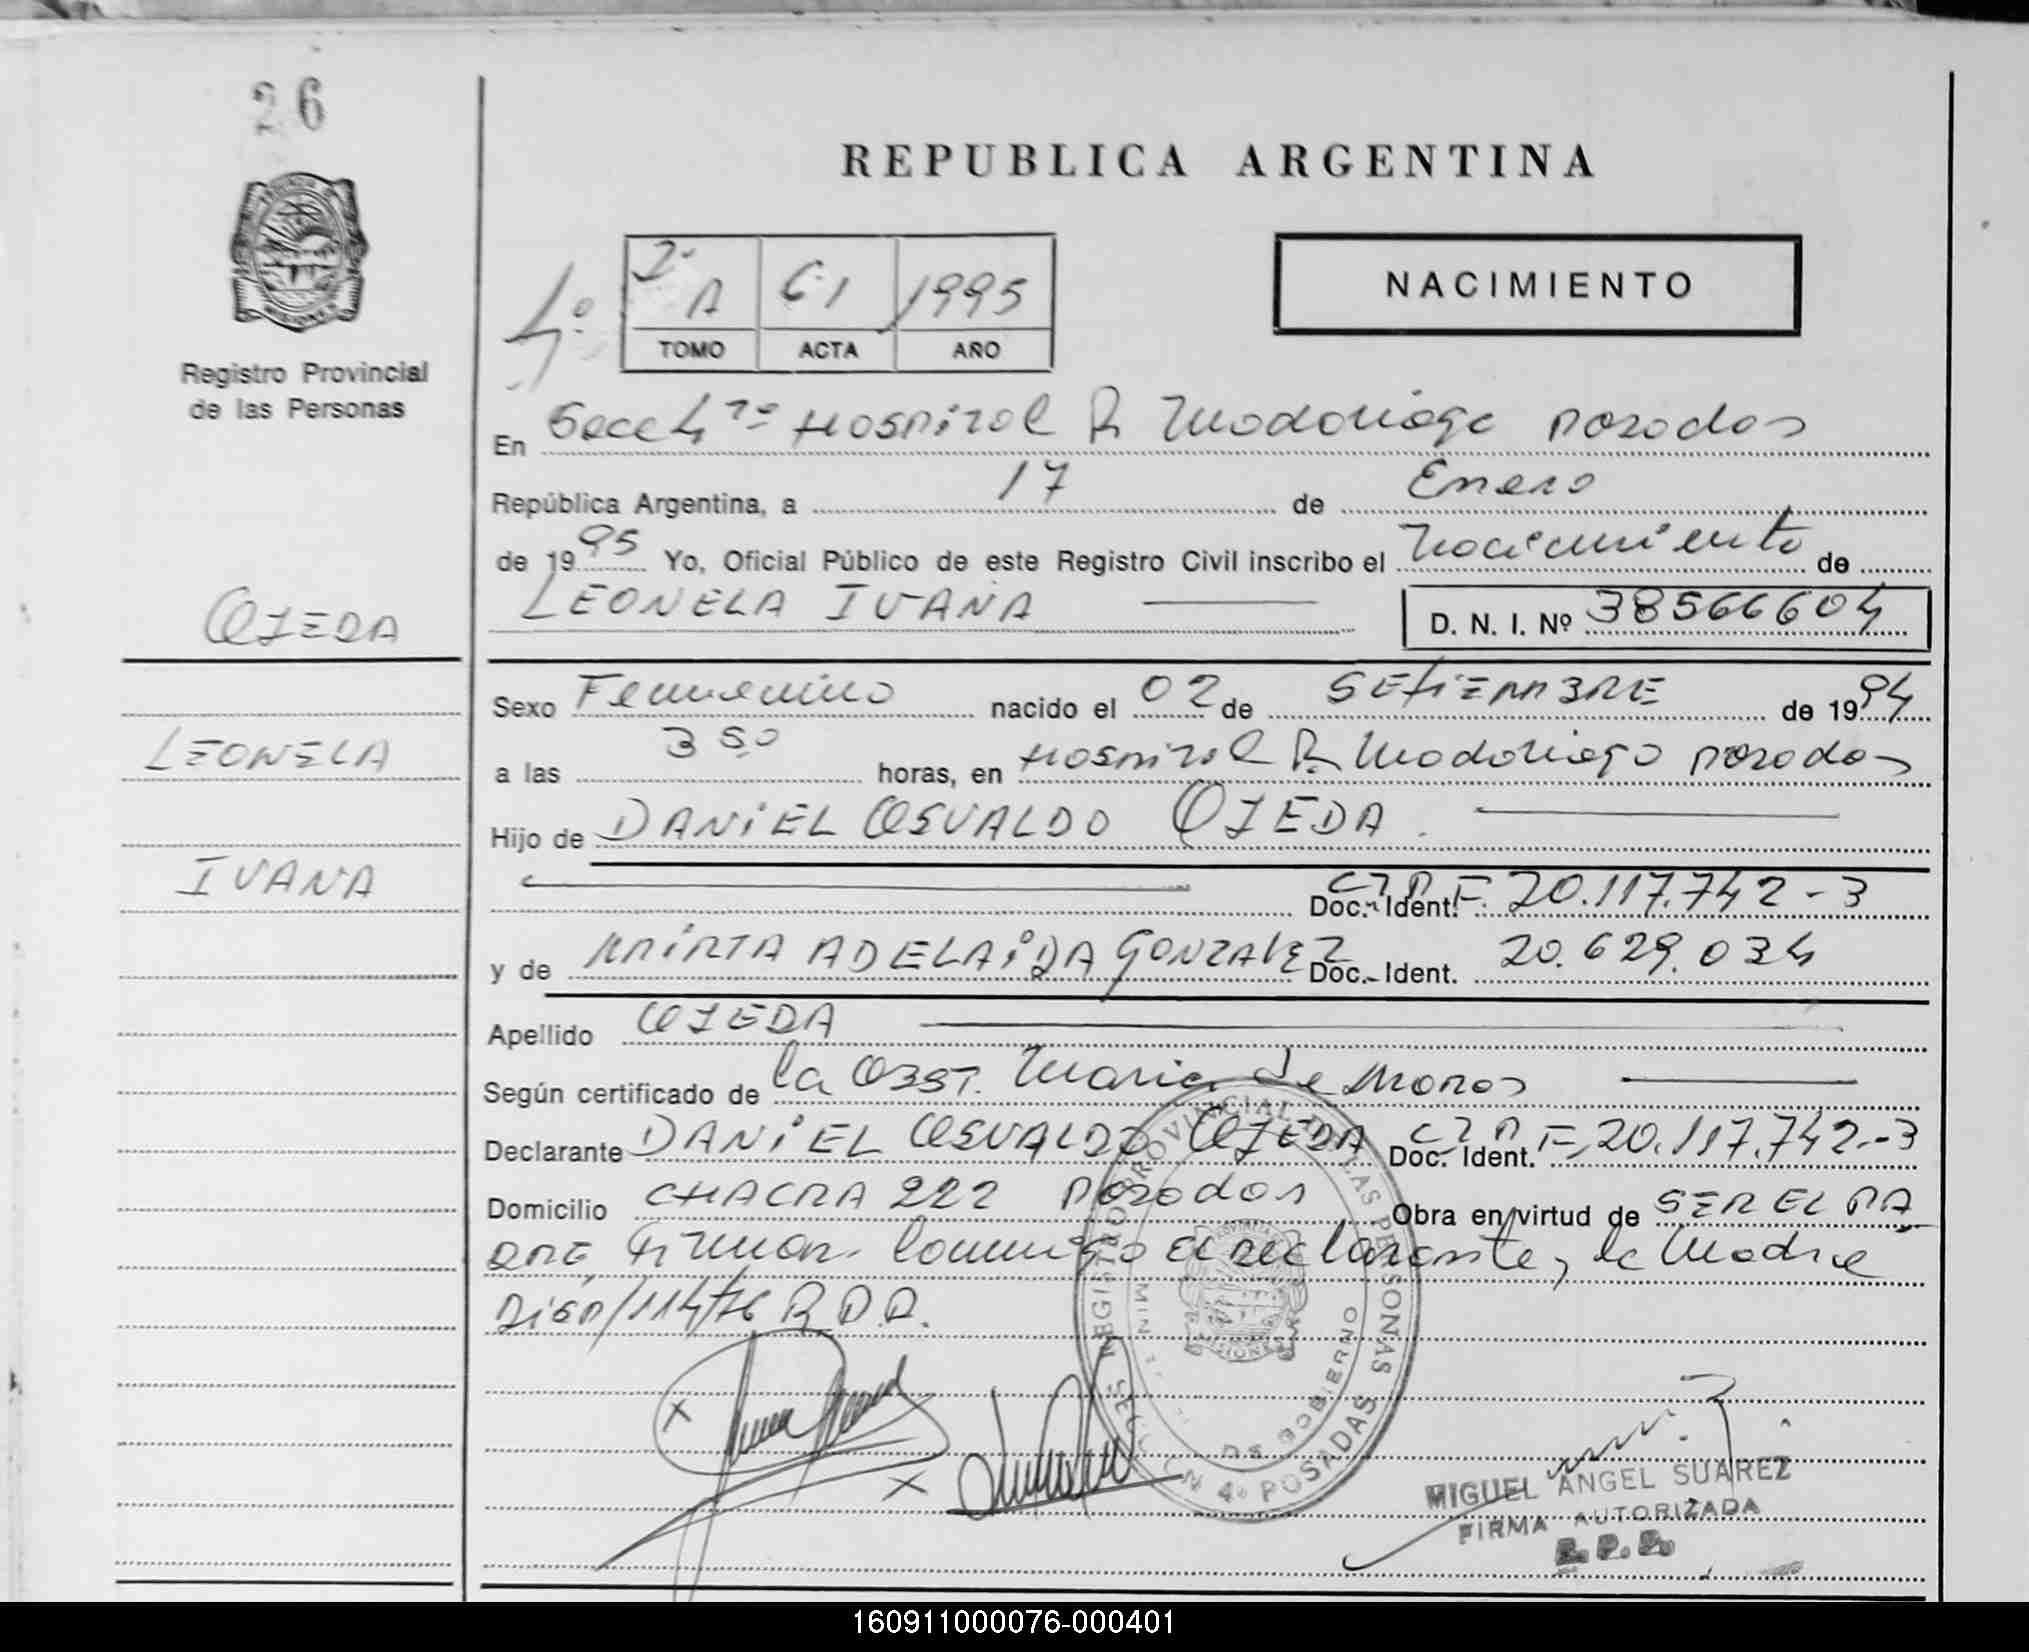 26
REPUBLICA ARGENTINA
NACIMIENTO
4º
2º A 61 1995
TOMO ACTA AÑO
Registro Provincial
de las Personas
En Secc 4ta Hospital R Madariaga Posadas
República Argentina, a 17 de Enero
de 1995 Yo, Oficial Público de este Registro Civil inscribo el Nacimiento de
LEONELA IVANA D. N. I. Nº 38566604
OJEDA
LEONELA
IVANA
Sexo Femenino nacido el 02 de SETIEMBRE de 1994
a las 3 50 horas, en Hospital R. Madariaga Posadas
Hijo de DANIEL OSVALDO OJEDA.
Doc.-Ident. F. 20.117.742-3
y de MIRTA ADELAIDA GONZALEZ Doc.-Ident. 20.629.034
Apellido OJEDA
Según certificado de la OBST. Maria de
Declarante DANIEL OSVALDO OJEDA Doc. Ident. F. 20.117.742-3
Domicilio CHACRA 222 Posadas Obra en virtud de SER EL PA
DRE, Firman conmigo el declarante, la Madre
Disp/114/76 R.P.P.
REGISTRO PROVINCIAL DE LAS PERSONAS
SECCION 4º POSADAS
MIN DE GOBIERNO
MISIONES
MIGUEL ANGEL SUAREZ
FIRMA AUTORIZADA
R.P.P.
160911000076-000401